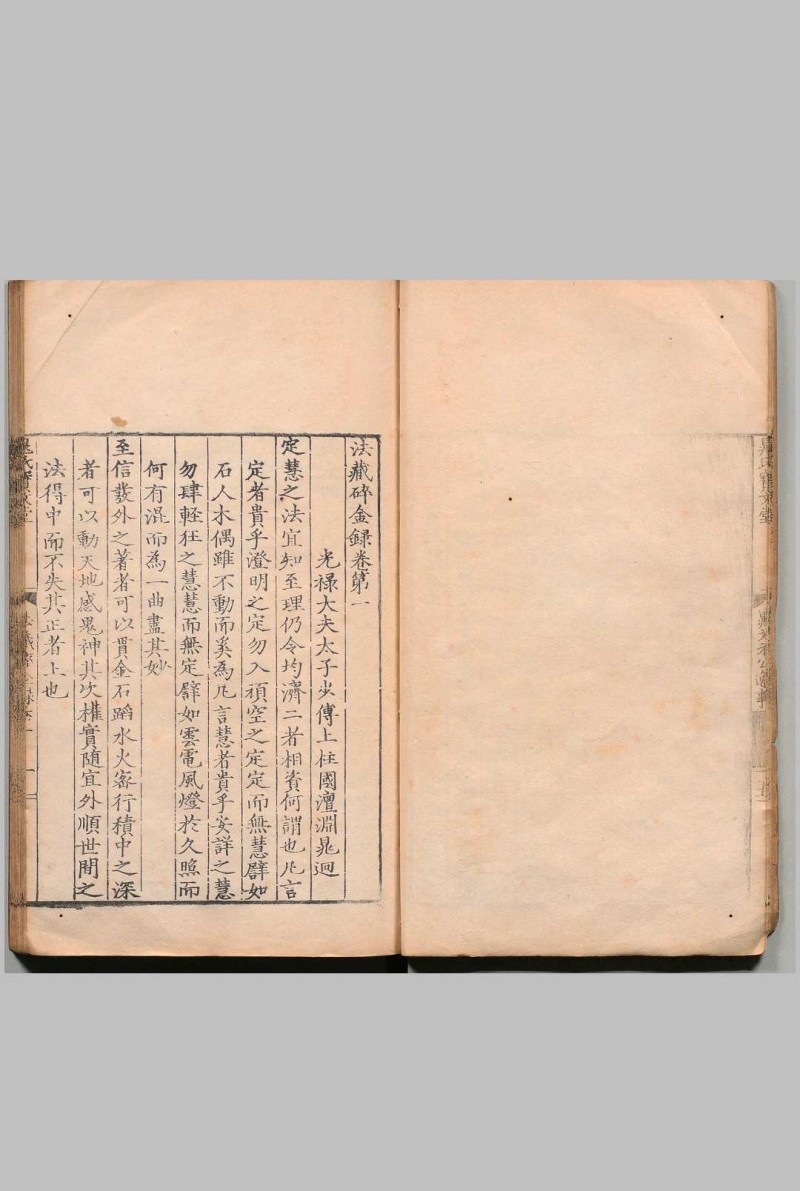 法藏碎金録卷第一
光禄大夫太子少傅上柱國澶淵晁迥
定慧之法宜知至理仍令均濟二者相資何謂也凡言
定者貴乎澄明之定勿入頑空之定定而無慧譬如
石人木偶雖不動而奚為凡言慧者貴乎安詳之慧
勿肆輕狂之慧慧而無定譬如雲電風燈於久照而
何有混而為一曲盡其妙
至信發外之著者可以貫金石蹈水火密行積中之深
者可以動天地感鬼神其次權實随宜外順世間之
法得中而不失其正者上也
晁氏寶文堂